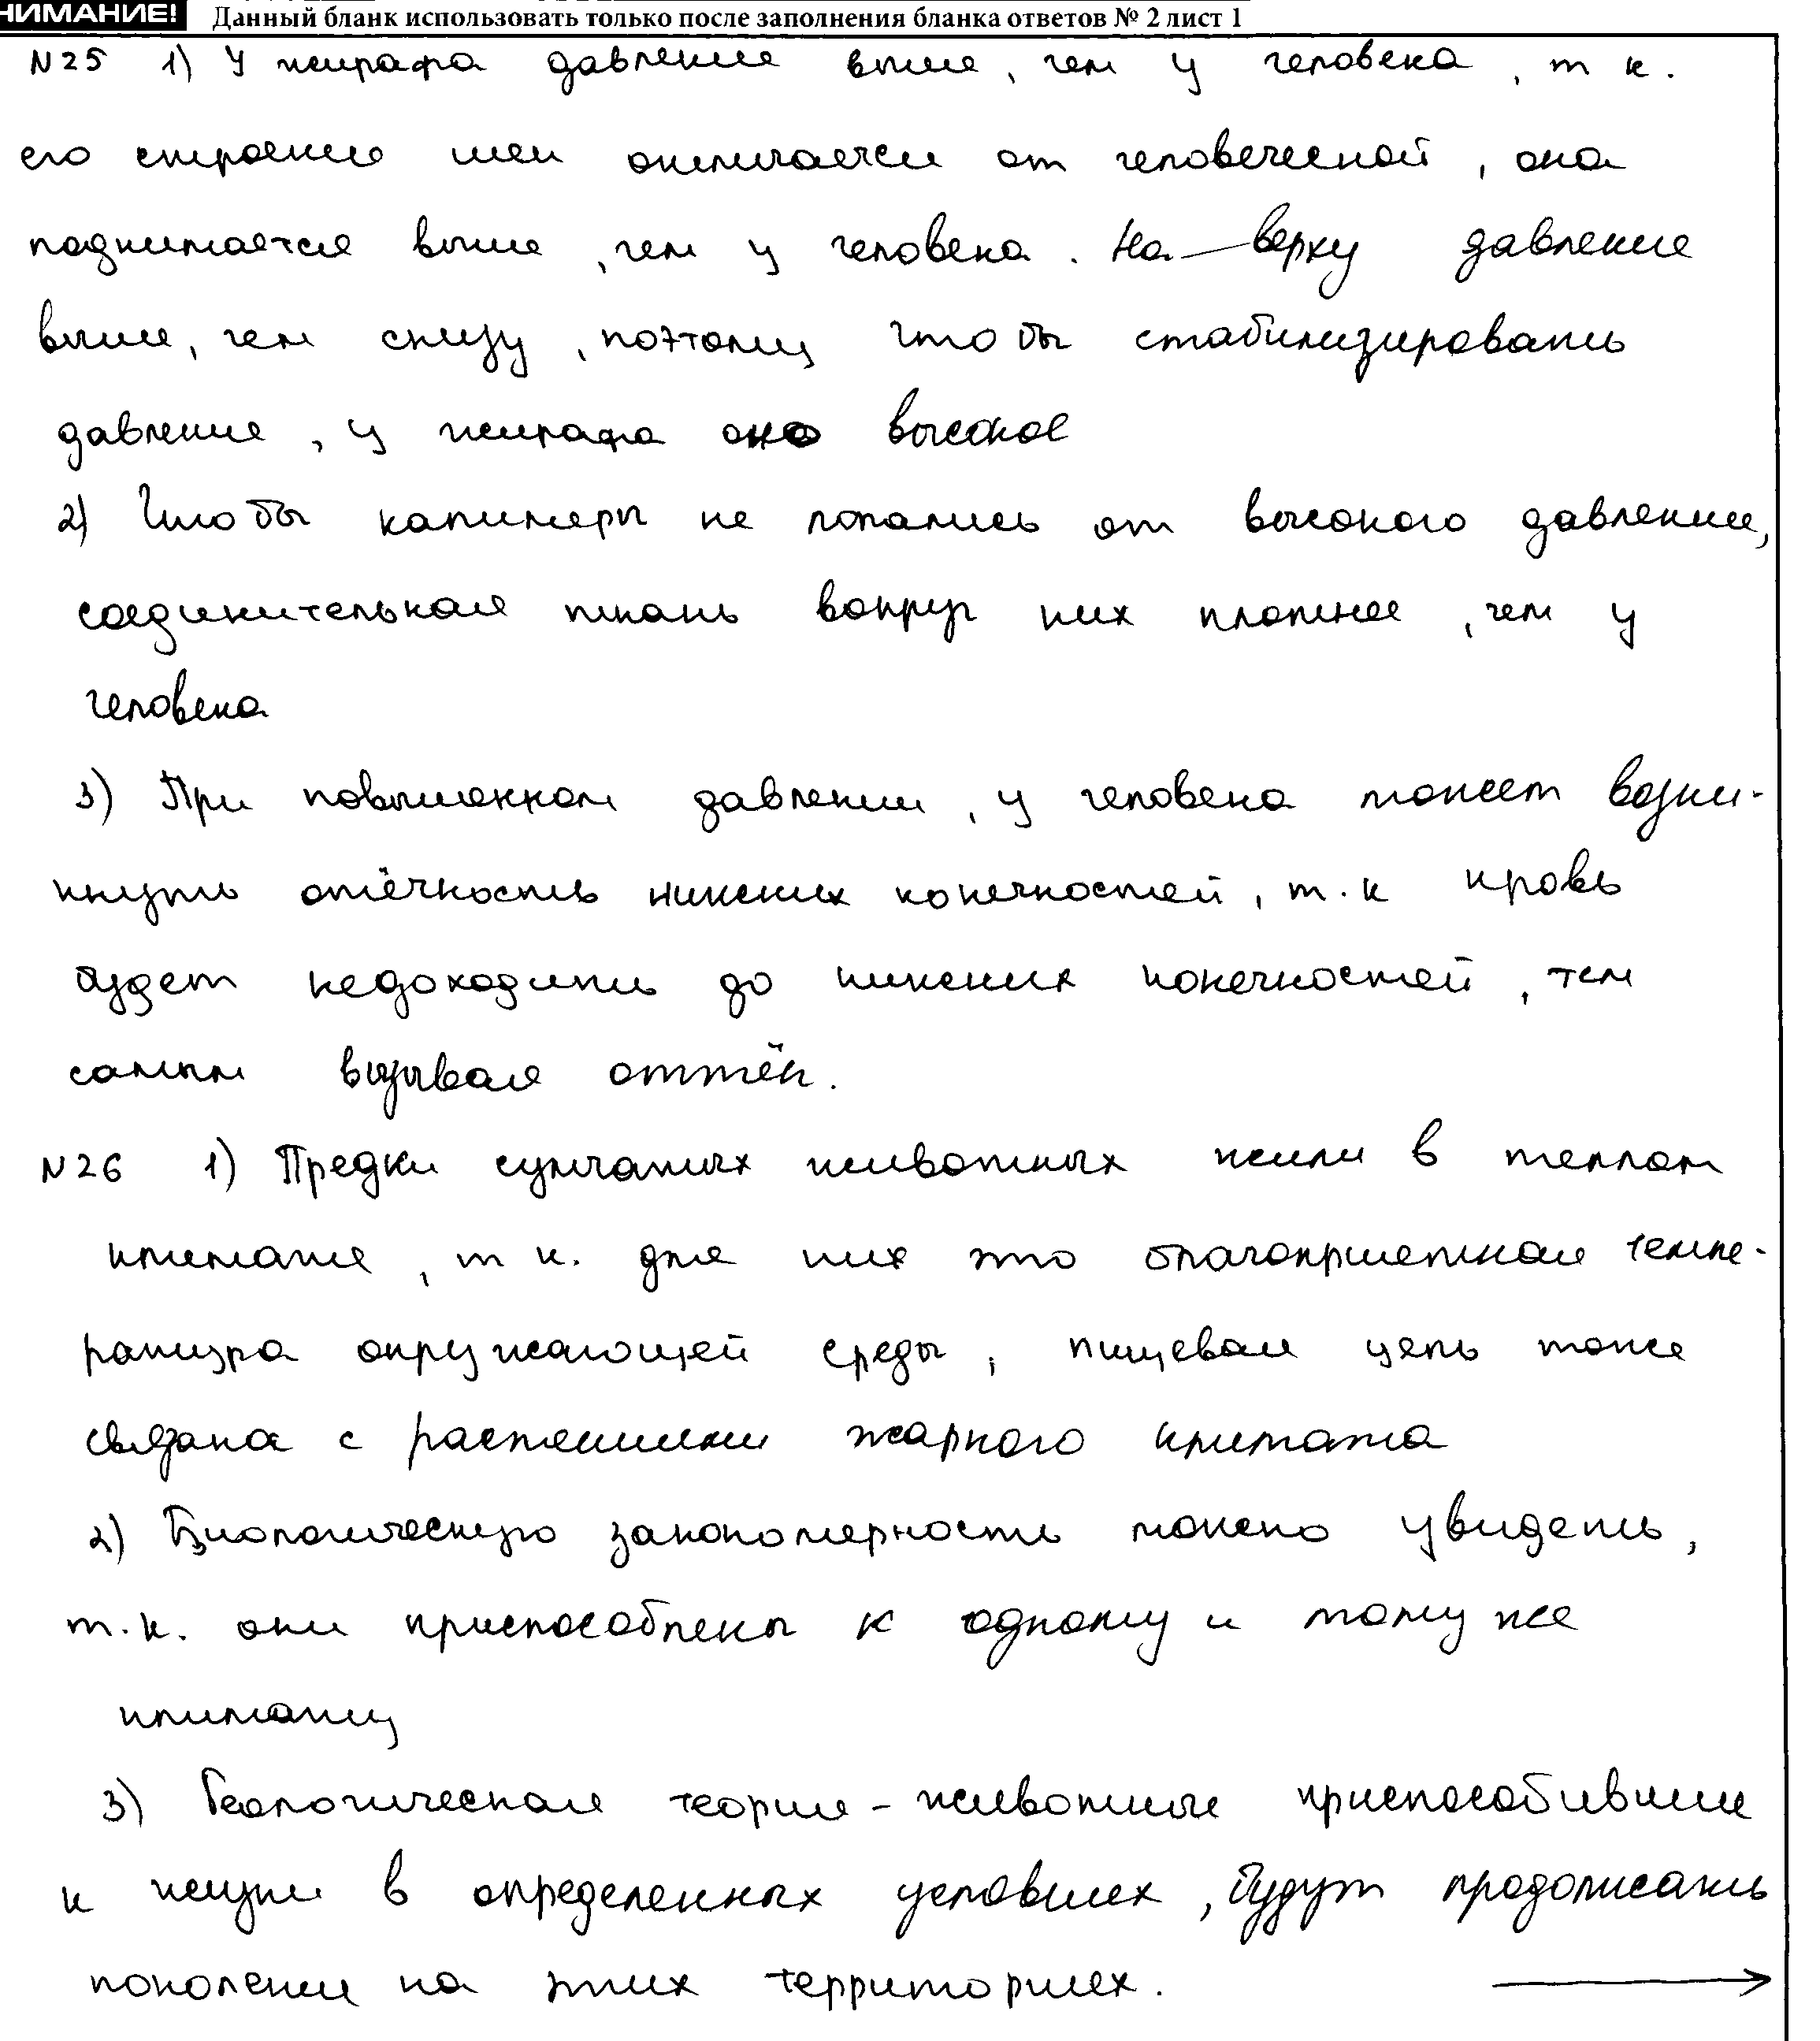 НИМАНИЕ! Данный бланк использовать только после заполнения бланка ответов № 2 лист 1
N25 1) У жирафа давление выше, чем у человека, т к.
его строение шеи отличается от человеческой, она
поднимается выше, чем у человека. На верху давление
выше, чем снизу, поэтому что бы стабилизировать
давление, у жирафа оно высокое
2) Что бы капиляры не лопались от высокого давления,
соединительная ткань вокруг них плотнее, чем у
человека
3) При повышенном давлении, у человека может возни-
кнуть отёчность нижних конечностей, т.к кровь
будет недоходить до нижних конечностей, тем
самым вызывая оттёк.
N26 1) Предки сумчатых животных жили в теплом
климате, т к. для них это благоприятная темпе-
ратура окружающей среды, пищевая цепь тоже
связана с растениями жаркого климата
2) Биологическую закономерность можно увидеть,
т.к. они приспособлены к одному и тому же
климату
3) Геологическая теория - животные приспособившие
к жизни в определенных условиях, будут продолжать
поколение на этих территориях.